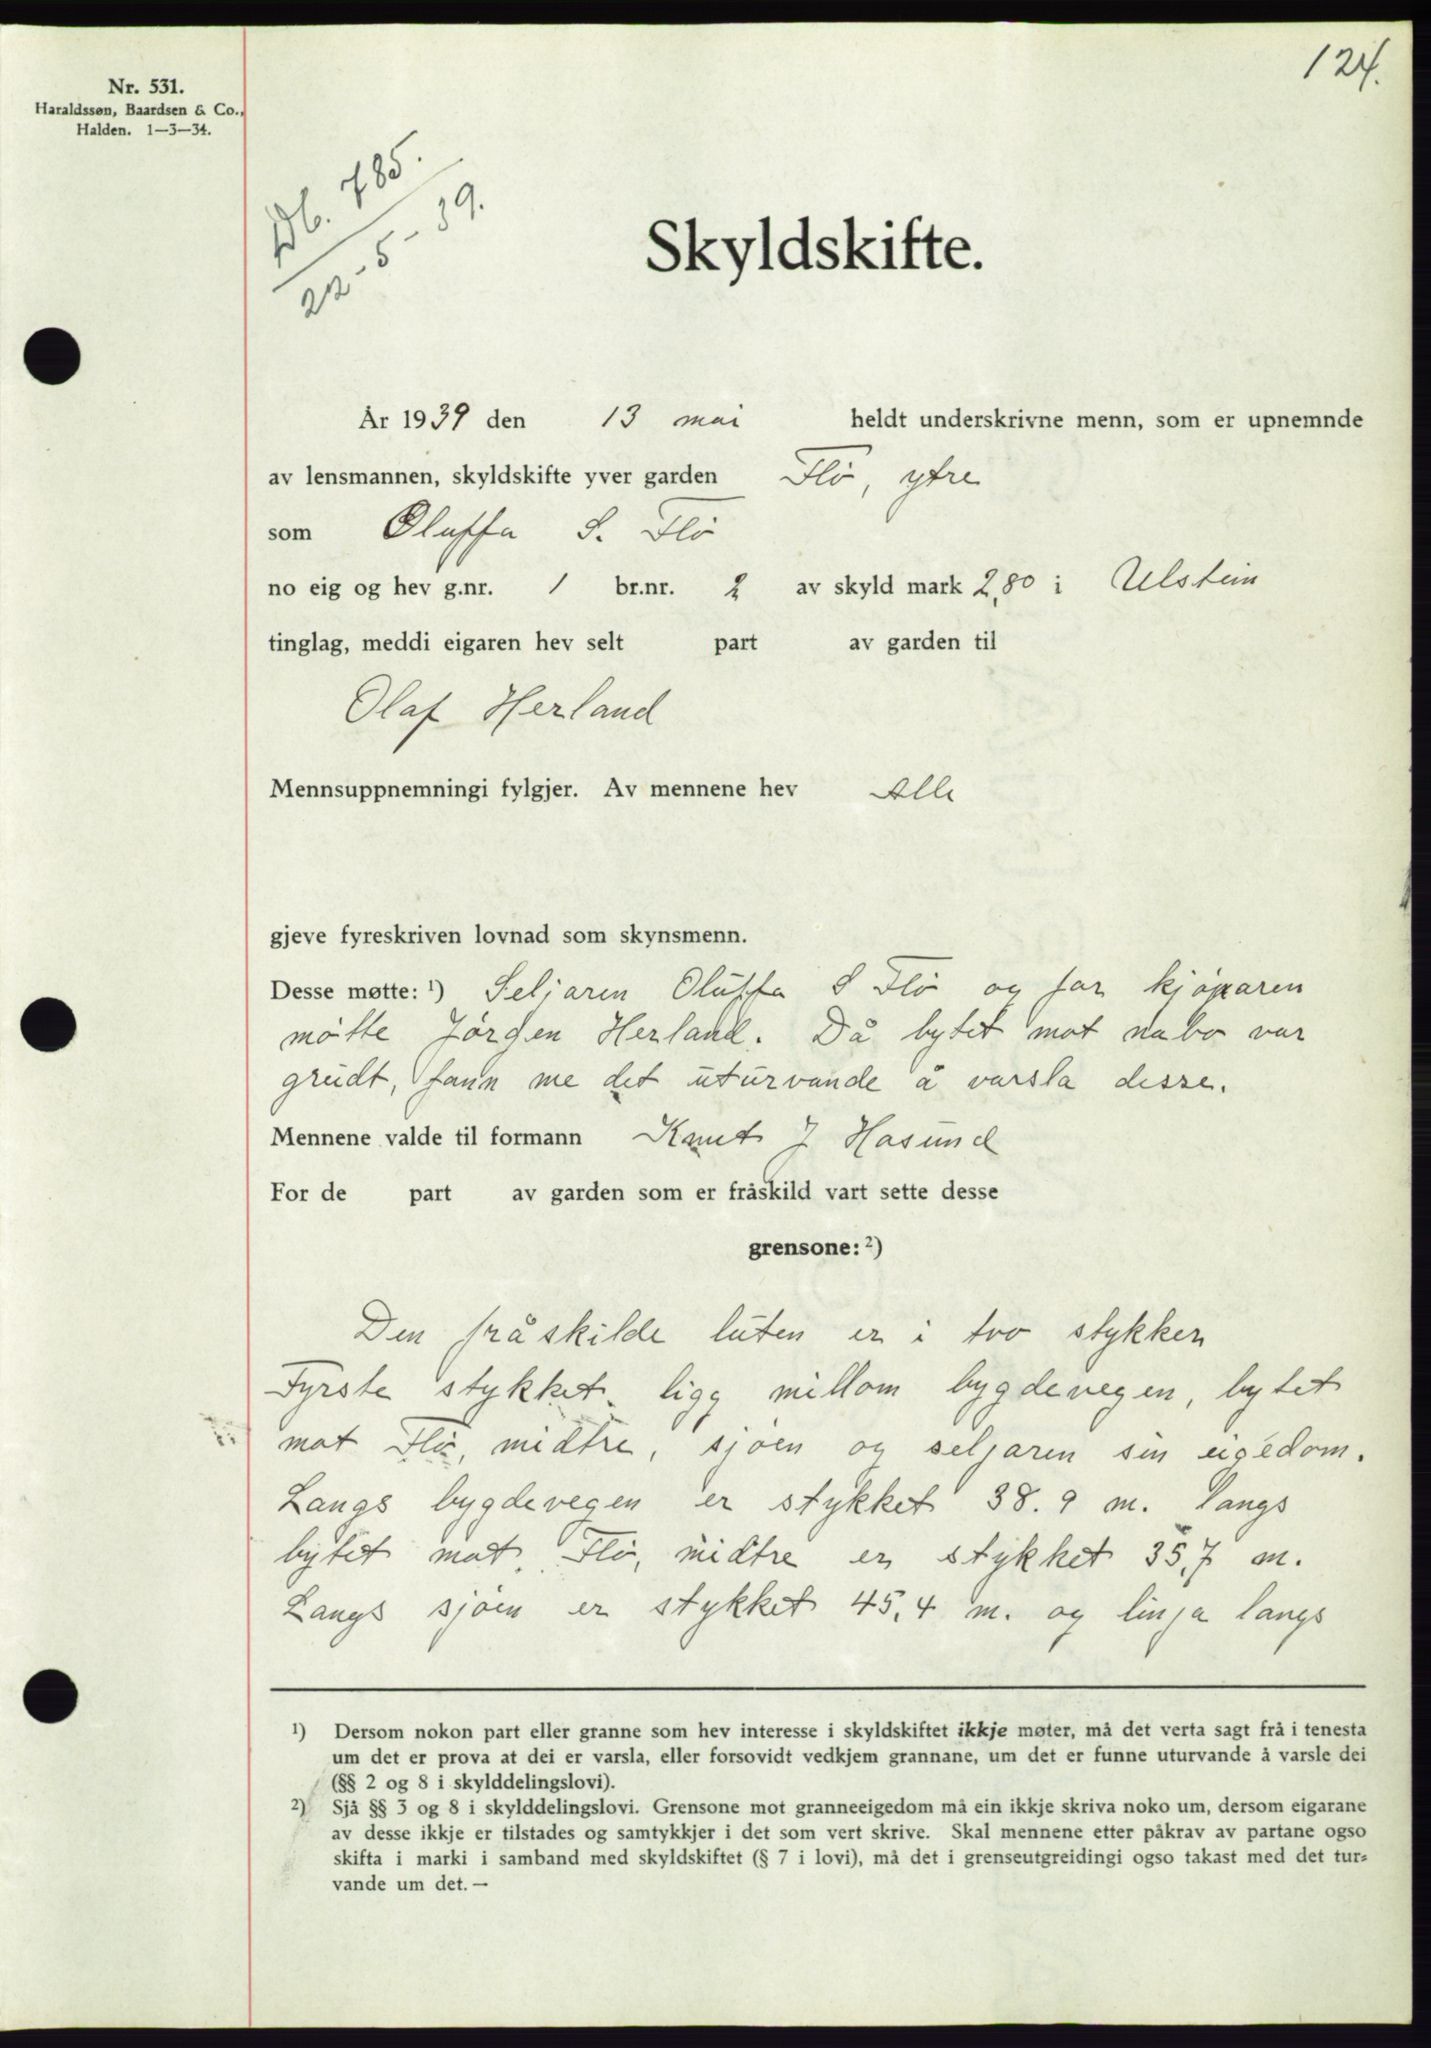 124.
Nr. 531.
Haraldssøn, Baardsen & Co.,
Halden. 1—3—34.
Db. 785.
22-5-39.
Skyldskifte.
År 1939 den 13 mai heldt underskrivne menn, som er upnemnde
av lensmannen, skyldskifte yver garden Flö, ytre
som Oluffa S. Flö
no eig og hev g.nr. 1 br.nr. 2 av skyld mark 2,80 i Ulstein
tinglag, meddi eigaren hev selt part av garden til
Olaf Herland
Mennsuppnemningi fylgjer. Av mennene hev Alle
gjeve fyreskriven lovnad som skynsmenn.
Desse møtte: ¹) Seljaren Oluffa S Flö og for kjöparen
mötte Jörgen Herland. Då bytet mot nabo var
greidt, fann me det uturvande å varsla desse.
Mennene valde til formann Knut J Hasund
For de part av garden som er fråskild vart sette desse
grensone: ²)
Den fråskilde luten er i tvo stykker
Fyrste stykket ligg millom bygdevegen, bytet
mot Flö, midtre, sjöen og seljaren sin eigedom.
Langs bygdevegen er stykket 38.9 m. langs
bytet mot Flö, midtre er stykket 35,7 m.
Langs sjöen er stykket 45,4 m. og linja langs
¹) Dersom nokon part eller granne som hev interesse i skyldskiftet ikkje møter, må det verta sagt frå i tenesta
um det er prova at dei er varsla, eller forsovidt vedkjem grannane, um det er funne uturvande å varsle dei
(§§ 2 og 8 i skylddelingslovi).
²) Sjå §§ 3 og 8 i skylddelingslovi. Grensone mot granneeigedom må ein ikkje skriva noko um, dersom eigarane
av desse ikkje er tilstades og samtykkjer i det som vert skrive. Skal mennene etter påkrav av partane ogso
skifta i marki i samband med skyldskiftet (§ 7 i lovi), må det i grenseutgreidingi ogso takast med det tur-
vande um det. —